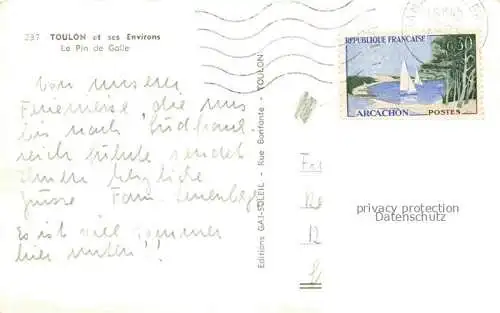 237 TOULON et ses Environs
Le Pin de Galle
Von unserer
Ferienreise die uns
bis nach Südfrank-
reich führte sendet
Ihnen herzliche
Grüsse Fam.
Es ist viel Sommer
hier unten!!
Editions GAI-SOLEIL - Rue Bonfante - TOULON
REPUBLIQUE FRANÇAISE
0,30
ARCACHON POSTES
privacy protection
Datenschutz